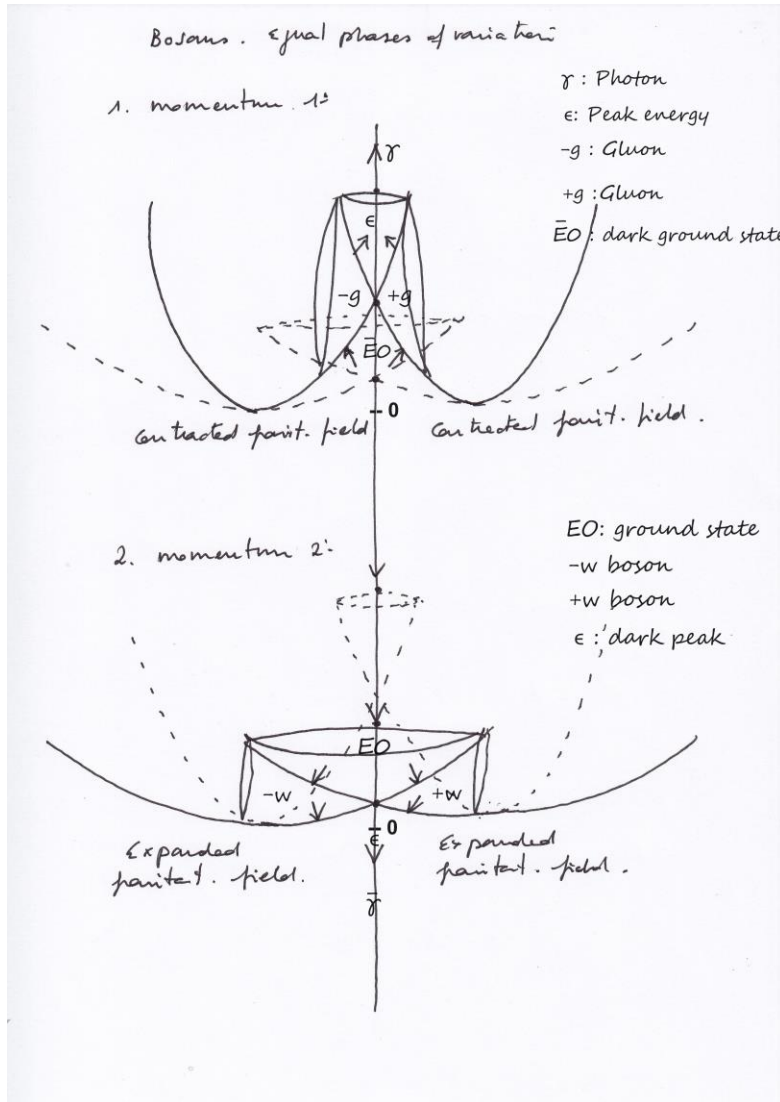 Bosons. Equal phases of variation
1. momentum 1ª
γ : Photon
ϵ: Peak energy
-g : Gluon
+g : Gluon
ĒO : dark ground state
γ
ϵ
-g +g
ĒO
0
Contracted field
Contracted field.
2. momentum 2ª
EO: ground state
-w boson
+w boson
ϵ : dark peak
EO
-w +w
0
ϵ̄
Expanded
field.
Expanded
field.
γ̄